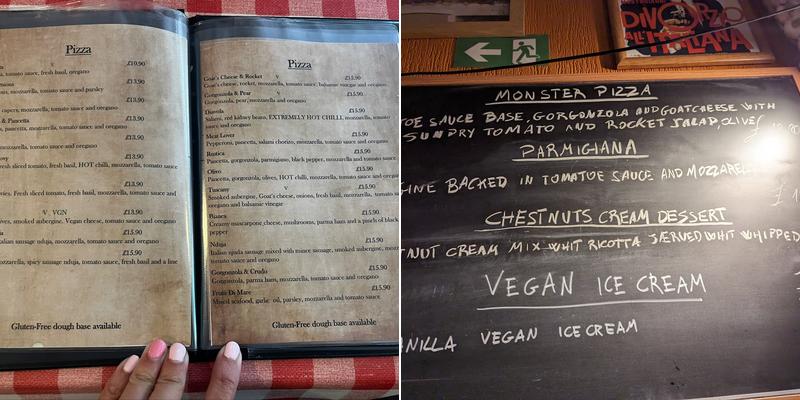 Pizza
£10.90
tomato sauce, fresh basil, oregano
£13.90
mozzarella, tomato sauce and parsley
£13.90
capers, mozzarella, tomato sauce and oregano
& Pancetta £13.90
pancetta, mozzarella, tomato sauce and oregano
£13.90
fresh sliced tomato, fresh basil, HOT chilli, mozzarella, tomato sauce
£13.90
Fresh sliced tomato, fresh basil, mozzarella, tomato sauce and
V VGN £13.90
smoked aubergine, Vegan cheese, tomato sauce and oregano
£15.90
Italian sausage nduja, mozzarella, tomato sauce and oregano
£15.90
mozzarella, spicy sausage nduja, tomato sauce, fresh basil and a lime
Gluten-Free dough base available
Pizza
Goat's Cheese & Rocket V £15.90
Goat's cheese, rocket, mozzarella, tomato sauce, balsamic vinegar and oregano
Gorgonzola & Pear £15.90
Gorgonzola, pear, mozzarella and oregano
Diavola £15.90
Salami, red kidney beans, EXTREMELY HOT CHILLI, mozzarella, tomato
sauce and oregano
Meat Lover £15.90
Pepperoni, pancetta, salami chorizo, mozzarella, tomato sauce and oregano
Rustica £15.90
Pancetta, gorgonzola, parmigiano, black pepper, mozzarella and tomato sauce
Olivo £15.90
Pancetta, gorgonzola, olives, HOT chilli, mozzarella, tomato sauce and oregano
Tuscany V £15.90
Smoked aubergine, Goat's cheese, onions, fresh basil, mozzarella, tomato
oregano and balsamic vinegar
Bianca £15.90
Creamy mascarpone cheese, mushrooms, parma ham and a pinch of black
pepper
Nduja £15.90
Italian njuda sausage mixed with mince sausage, smoked aubergine, mozzarella
tomato sauce and oregano
Gorgonzola & Crudo £15.90
Gorgonzola, parma ham, mozzarella, tomato sauce and oregano
Frutti Di Mare £15.90
Mixed seafood, garlic oil, parsley, mozzarella and tomato sauce
Gluten-Free dough base available
DIVORZIO
ALL'ITALIANA
MONSTER PIZZA
TOE SAUCE BASE, GORGONZOLA AND GOATCHEESE WITH
SUNDRY TOMATO AND ROCKET SALAD, OLIVE
PARMIGIANA
GINE BACKED IN TOMATOE SAUCE AND MOZZAREL
£1
CHESTNUTS CREAM DESSERT
NUT CREAM MIX WHIT RICOTTA SÆRVED WHIT WHIPPED
VEGAN ICE CREAM
ANILLA VEGAN ICE CREAM